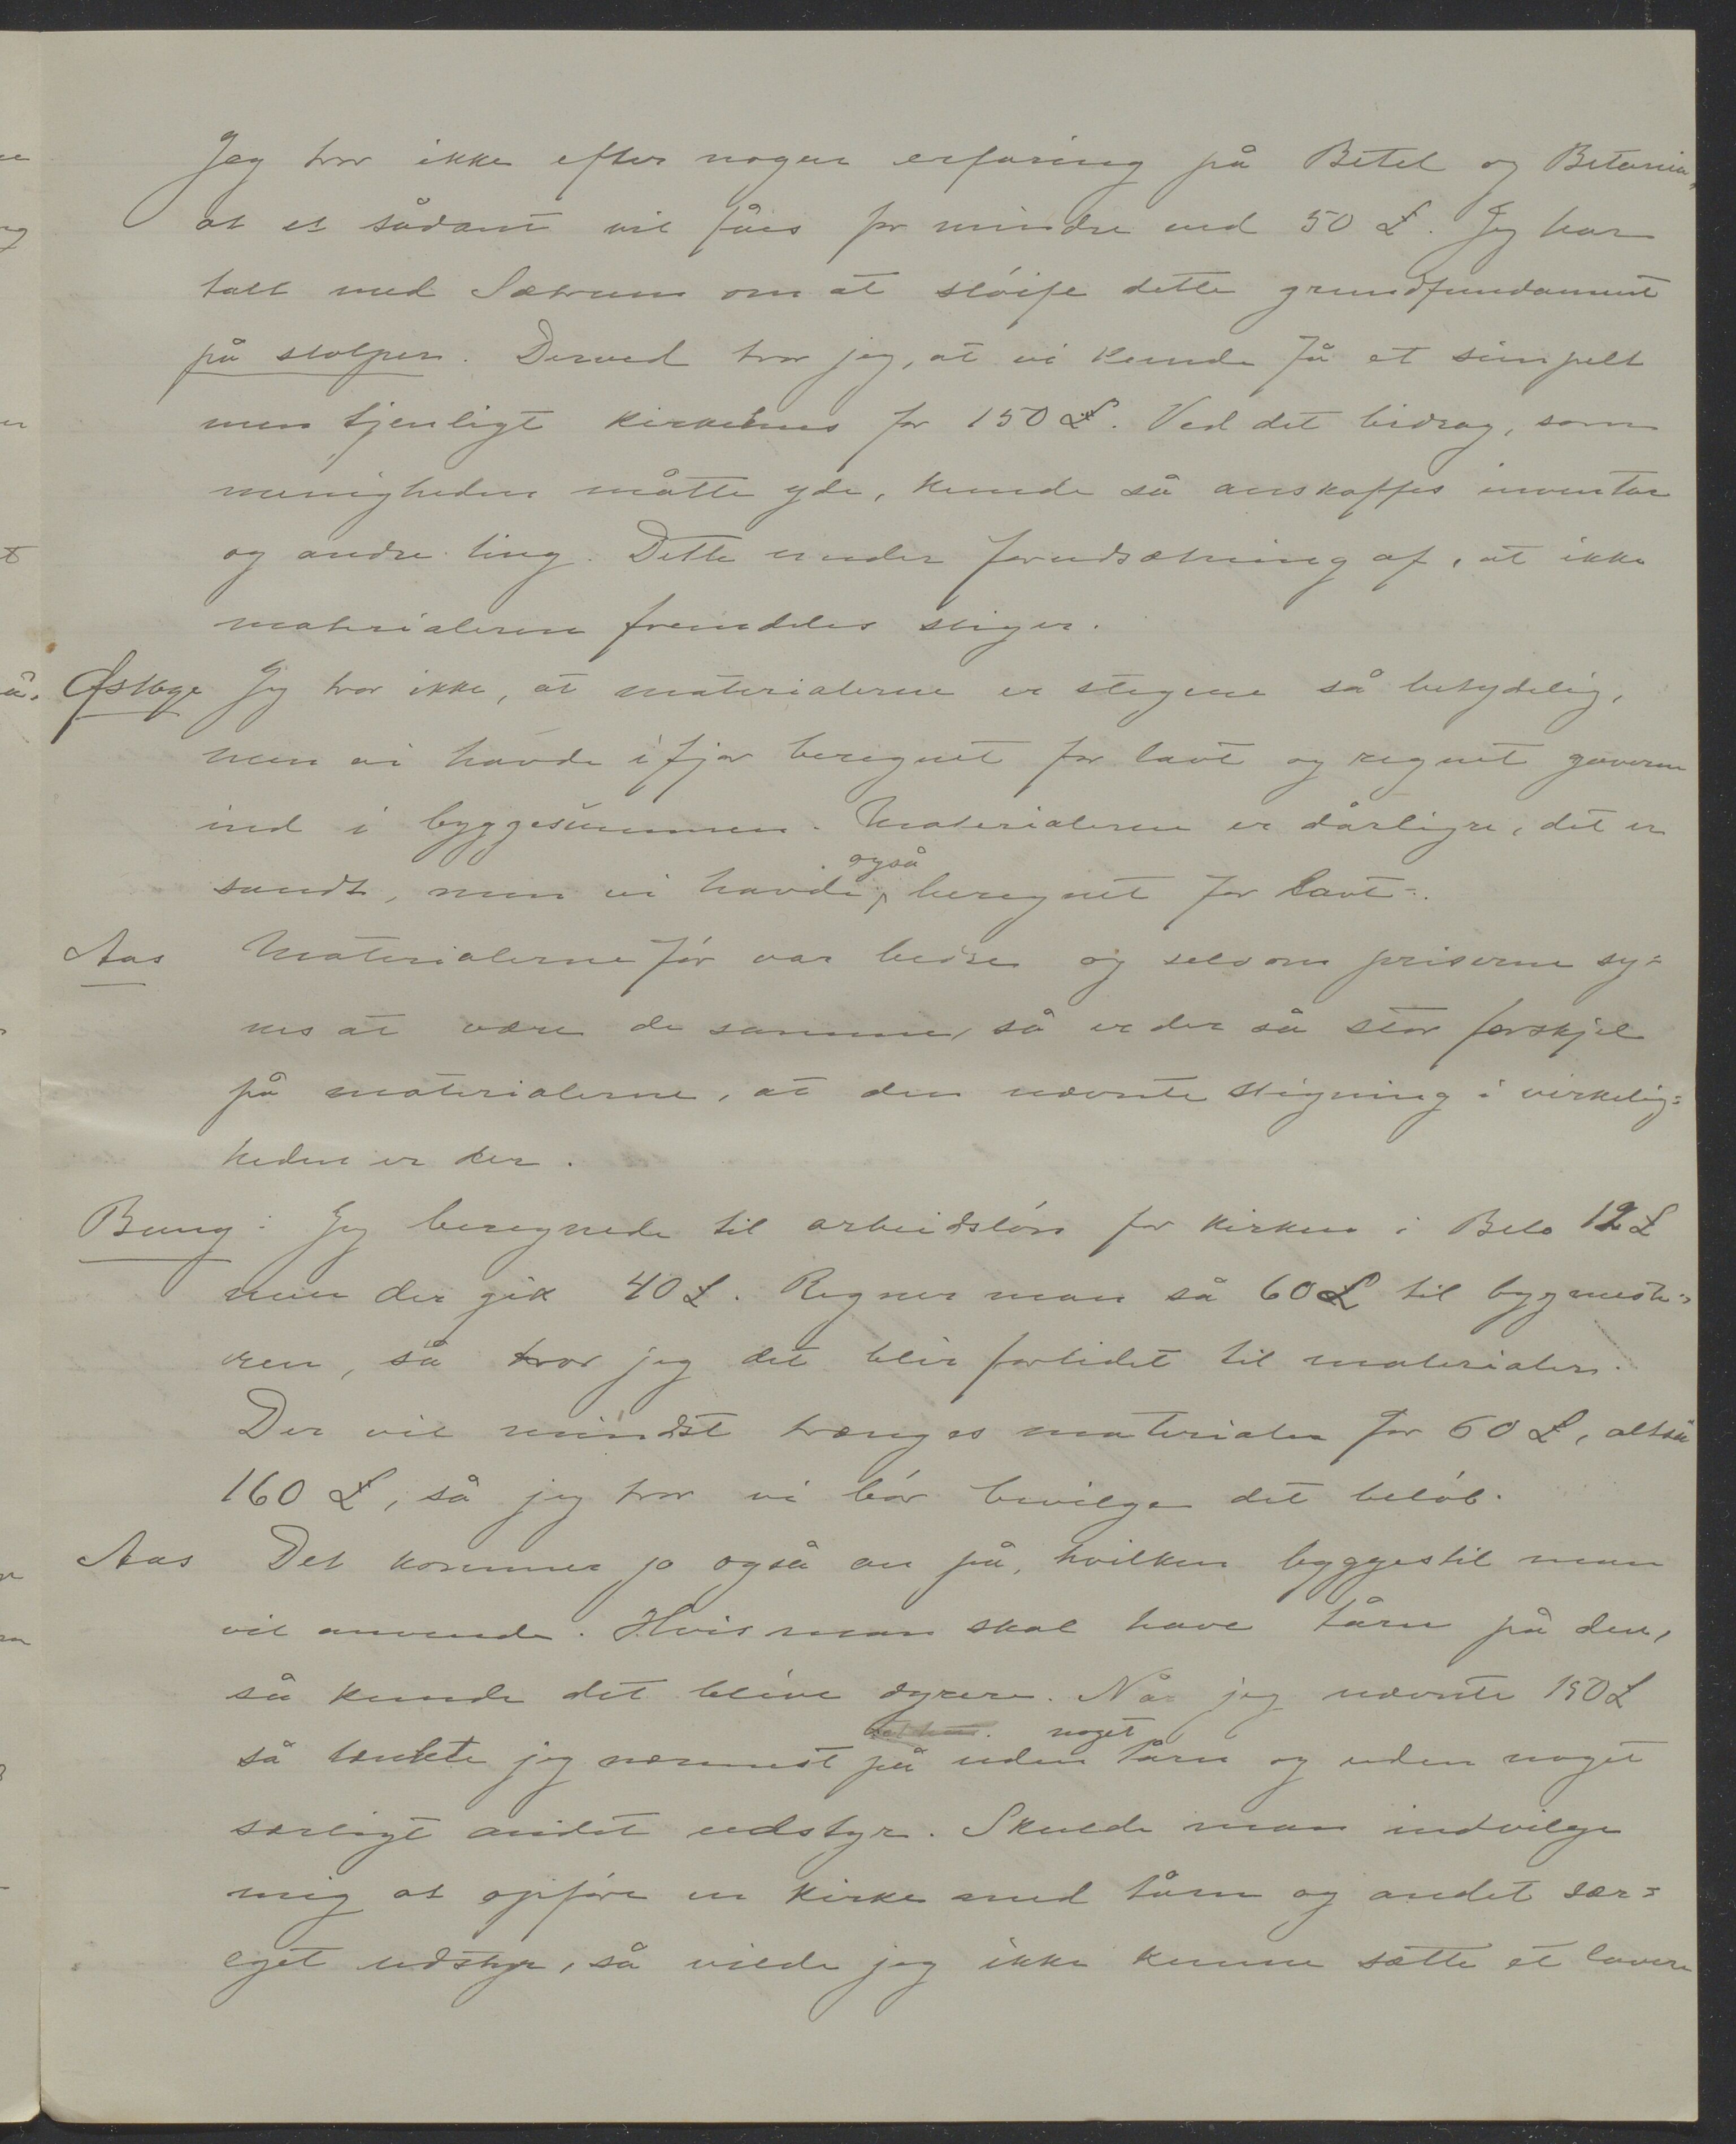 Jeg tror ikke efter nogen erfaring på Betel og Betania,
at et sådant vil fåes for mindre end 50 £. Jeg har
talt med Sætrum om at sløife dette grundfundament
på stolper. Derved tror jeg, at vi kunde få et simpelt
men tjenligt kirkehus for 150 £. Ved det bidrag, som
menigheden måtte yde, kunde så anskaffes inventar
og andre ting. Dette under forudsætning af, at ikke
materialerne fremdeles stiger.
Østbye Jeg tror ikke, at materialerne er stegene så betydelig,
men vi havde ifjor beregnet for lavt og regnet gaverne
ind i byggesummen. Materialerne er dårligre, det er
sandt, men vi havde også beregnet for lavt.
Aas Materialerne før var bedre og selvom priserne sy=
nes at være de samme, så er der så stor forskjel
på materialerne, at den nævnte stigning i virkelig=
heden er der.
Bung: Jeg beregnede til arbeidsløn for kirken i Belo 12 £
men der gik 40 £. Regner man så 60 £ til bygmeste=
ren, så tror jeg det blir forlidet til materialer.
Der vil mindst trænges materialer for 60 £, altså
160 £, så jeg tror vi bør bevilge det beløb.
Aas Det kommer jo også an på, hvilken byggestil man
vil anvende. Hvis man skal have tårn på den,
så kunde det blive dyrere. Når jeg nævnte 150 £
så tænkte jeg nærmest på uden noget tårn og uden noget
særligt andet udstyr. Skulde man indvilge
mig at opføre en kirke med tårn og andet sær=
eget udstyr, så vilde jeg ikke kunne sætte et lavere